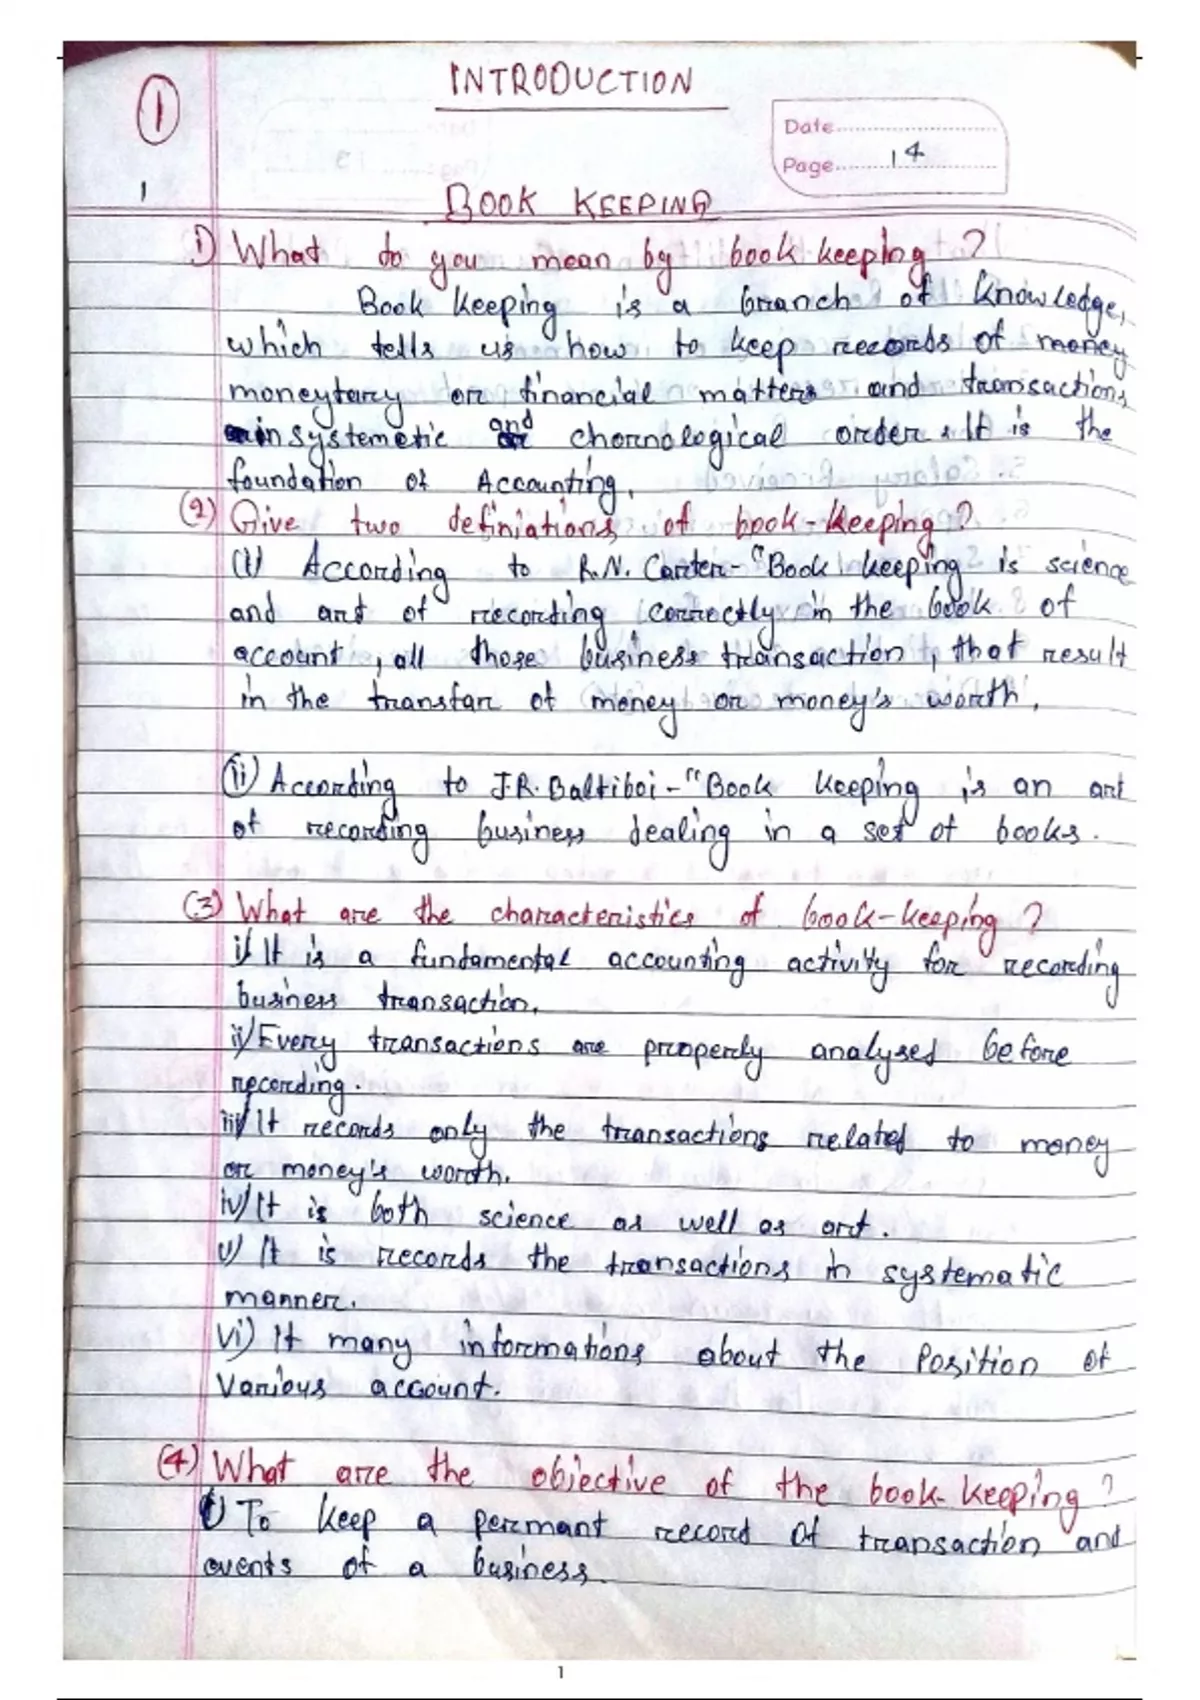 INTRODUCTION
1
Date
Page 14
1
BOOK KEEPING
1) What do you mean by book-keeping?
Book keeping is a branch of knowledge,
which tells us how to keep records of money
moneytary or financial matters and transactions
in systemetic and chornological order. It is the
foundation of Accounting.
(2) Give two definiations of book-keeping?
(1) According to R.N. Carter-"Book keeping is science
and art of recording correctly in the book of
account, all those business transaction, that result
in the transfar of money or money's worth.
(ii) According to J.R. Batliboi-"Book keeping is an art
of recording business dealing in a set of books.
(3) What are the characteristics of book-keeping?
i) It is a fundamental accounting activity for recording
business transaction.
ii) Every transactions are properly analysed before
recording.
iii) It records only the transactions related to money
or money's worth.
iv) It is both science as well as art.
v) It is records the transactions in systematic
manner.
vi) It many informations about the Position of
Various account.
(4) What are the objective of the book-keeping?
i) To keep a permant record of transaction and
events of a business.
1